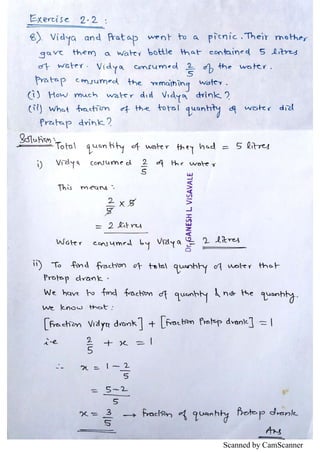 Exercise 2.2 :
8) Vidya and Pratap went to a picnic. Their mother
gave them a water bottle that contained 5 litres
of water. Vidya consumed 2/5 of the water.
Pratap consumed the remaining water.
(i) How much water did Vidya drink?
(ii) What fraction of the total quantity of water did
Pratap drink?
Solution:
Total quantity of water they had = 5 litres
i) Vidya consumed 2/5 of the water
This means :
2/5 × 5
= 2 litres
Water consumed by Vidya = 2 litres
Dr. GANESH L. VISAVALE
ii) To find fraction of total quantity of water that
Pratap drank.
We have to find fraction of quantity & not the quantity.
we know that :
[Fraction Vidya drank] + [Fraction Pratap drank] = 1
i.e 2/5 + x = 1
∴ x = 1 - 2/5
= 5-2/5
x = 3/5 → Fraction of quantity Pratap drank
Ans
Scanned by CamScanner